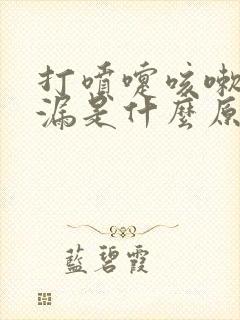 打噴嚏咳嗽
漏是什麼原
藍碧霞